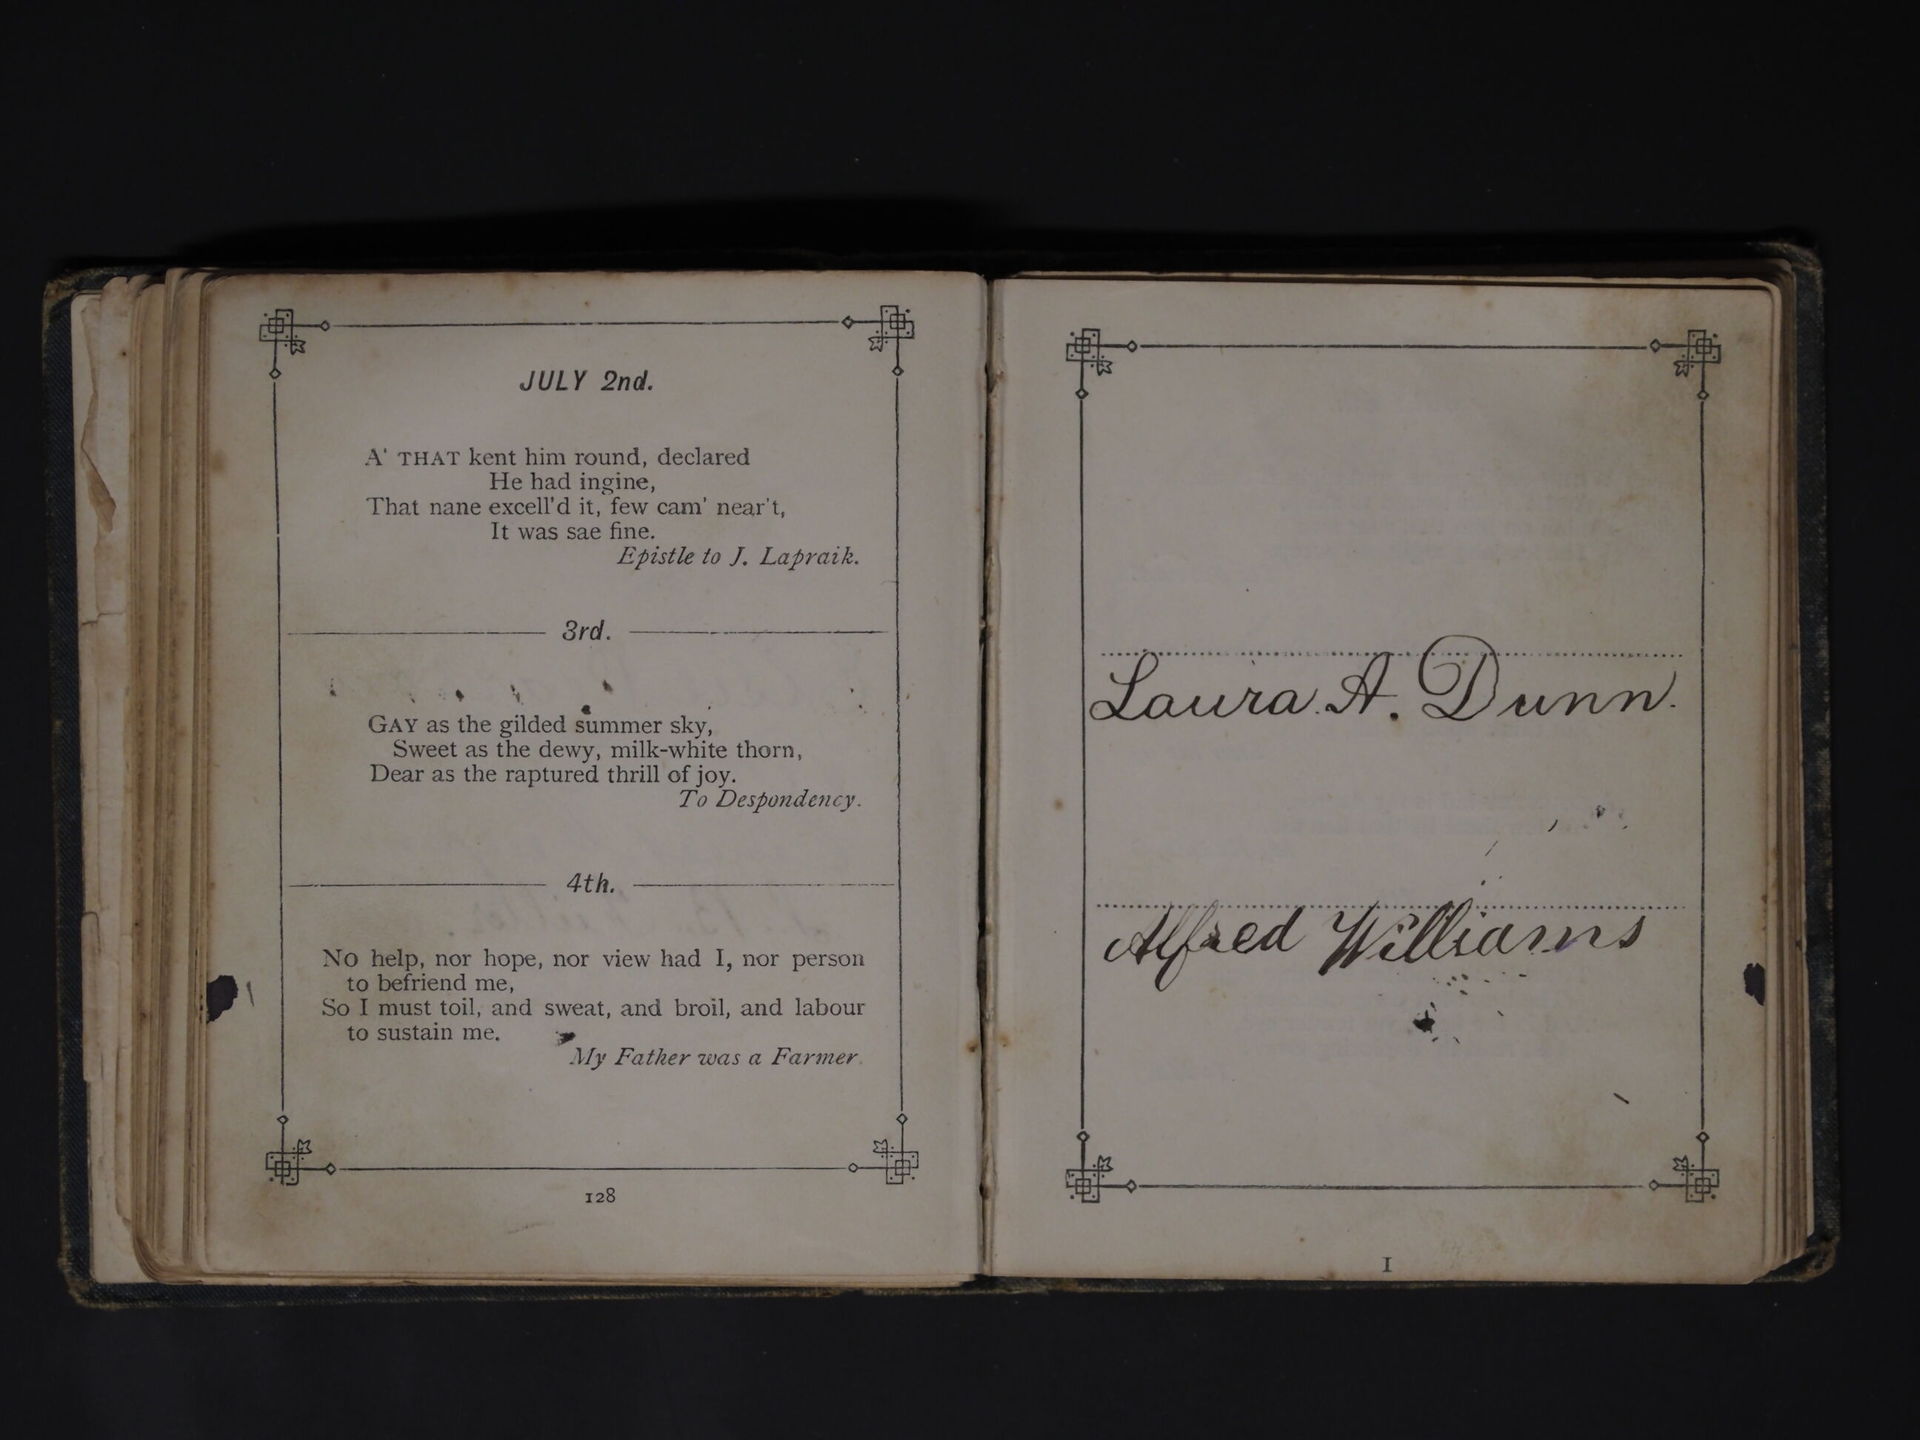 JULY 2nd.
A' THAT kent him round, declared
He had ingine,
That nane excell'd it, few cam' near't,
It was sae fine.
Epistle to J. Lapraik.
3rd.
GAY as the gilded summer sky,
Sweet as the dewy, milk-white thorn,
Dear as the raptured thrill of joy.
To Despondency.
4th.
No help, nor hope, nor view had I, nor person
to befriend me,
So I must toil, and sweat, and broil, and labour
to sustain me.
My Father was a Farmer.
128
Laura. A. Dunn.
Alfred Williams
I